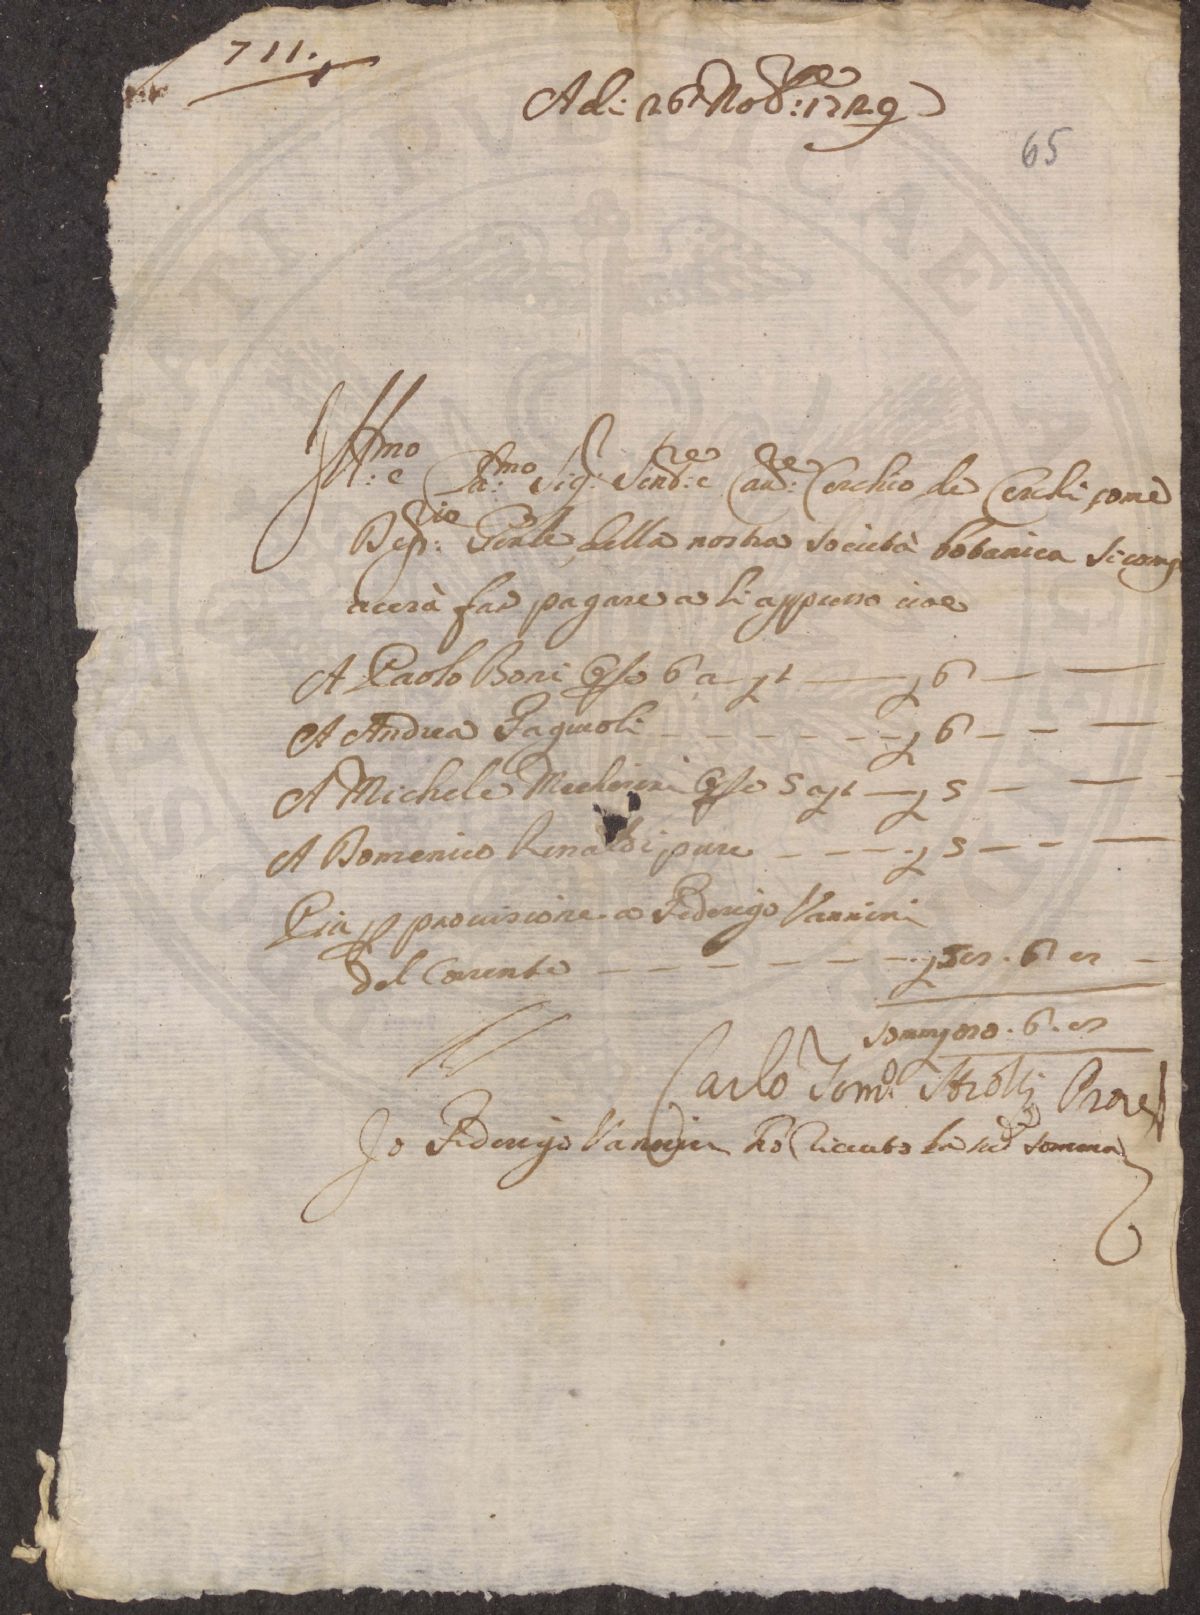 711.
Adi: 26 Nov:bre 1729
65
Ill:mo e Cla:mo Sig: Sen:re e Cav:re Cerchio de Cerchi come
Dep:rio Gen:le della nostra società botanica si comp
iacerà far pagare a li appresso cioe
A Paolo Boni Gse 6 a £ 1 £ 6
A Andrea Fagiuoli £ 6
A Michele Mechini Gse 5 a £ 1 £ 5
A Domenico Rinaldi pure £ 5
E più p provisione a Federigo Vannini
del Corrente 6
Somm 6
Carlo Tom:o Strozzi Prov:e
Io Federigo Vannini hò riceuto la sud:a somma